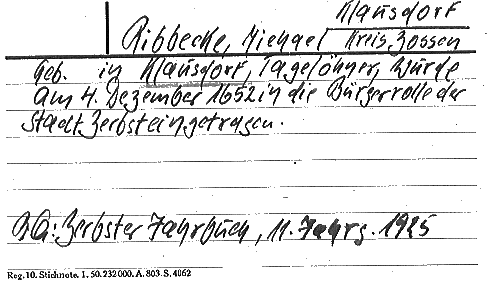 Klausdorf
Ribbecke, Michael Kreis Zossen
Geb. in Klausdorf, Tagelöhner, wurde
am 4. Dezember 1652 in die Bürgerrolle der
Stadt Zerbst eingetragen.
Qu: Zerbster Jahrbuch, 11. Jahrg. 1925
Reg. 10. Stichnote. 1. 50. 232000. A. 803. S. 4062